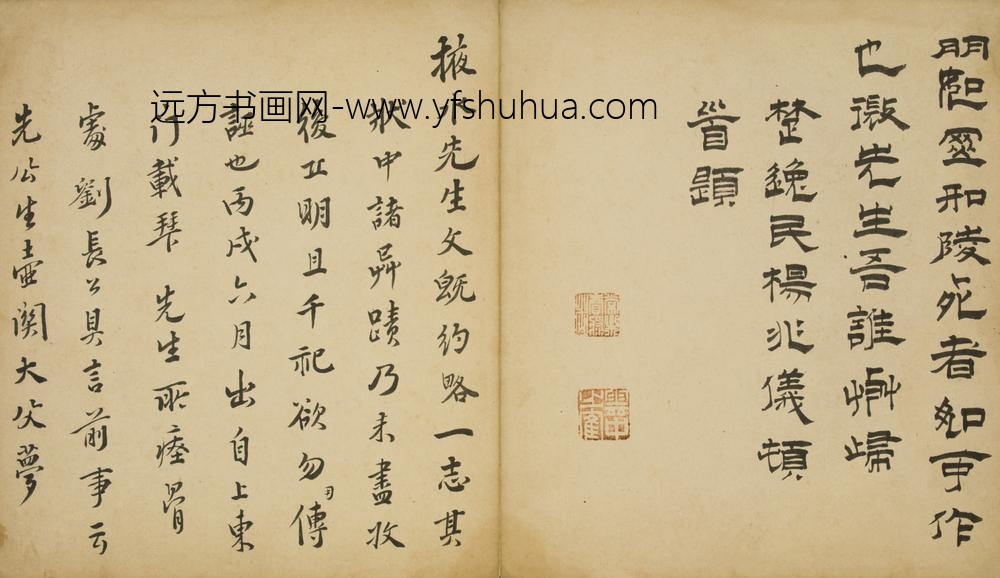 朋
和陵死者如可作
也微先生吾誰與歸
楚逸民楊兆儀頓
首題
掖
先生文既約略一志其
狀中諸異蹟乃未盡收
後丘明且千祀欲勿
傳
誣也丙戌六月出自上東
行載琴先生所瘞骨
處劉長公具言前事云
先公生壷関大父夢
远方书画网-www.yfshuhua.com